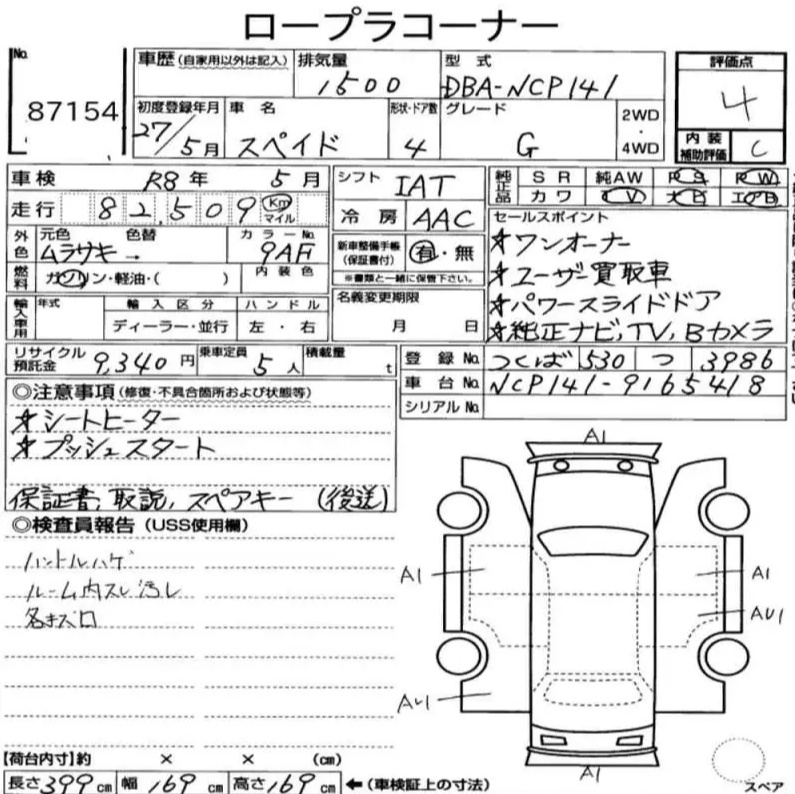 ロープラコーナー
No.
87154
車歴(自家用以外は記入) 排気量 1500 型式 DBA-NCP141
初度登録年月 27/5月 車名 スペイド 形状・ドア数 4 グレード G 2WD・4WD
評価点 4
内装補助評価 C
車検 R8年 5月 シフト IAT
走行 82,509 Km マイル 冷房 AAC
純正品 SR 純AW PS PW
カワ TV ナビ エアB
外色 元色 ムラサキ 色替 → カラーNo. 9AH
燃料 ガソリン・軽油・( ) 内装色
新車整備手帳(保証書付) 有・無
※書類と一緒に保管下さい。
名義変更期限 月 日
輸入車用 年式 輸入区分 ハンドル
ディーラー・並行 左・右
セールスポイント
★ワンオーナー
★ユーザー買取車
★パワースライドドア
★純正ナビ,TV,Bカメラ
リサイクル預託金 9,340円 乗車定員 5人 積載量 t
登録No. つくば 530 つ 3986
車台No. NCP141-9165418
シリアルNo.
◎注意事項(修復・不具合箇所および状態等)
★シートヒーター
★プッシュスタート
保証書,取説,スペアキー(後送)
◎検査員報告(USS使用欄)
ハンドルハゲ
ルーム内スレ汚レ
各キズ口
A1
A1
A1
AU1
AU1
A1
スペア
【荷台内寸】約 × × (cm)
長さ399cm 幅169cm 高さ169cm ←(車検証上の寸法)